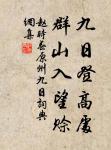 九日登高處
群山入望賒
趙時春原州九日詞典
網集